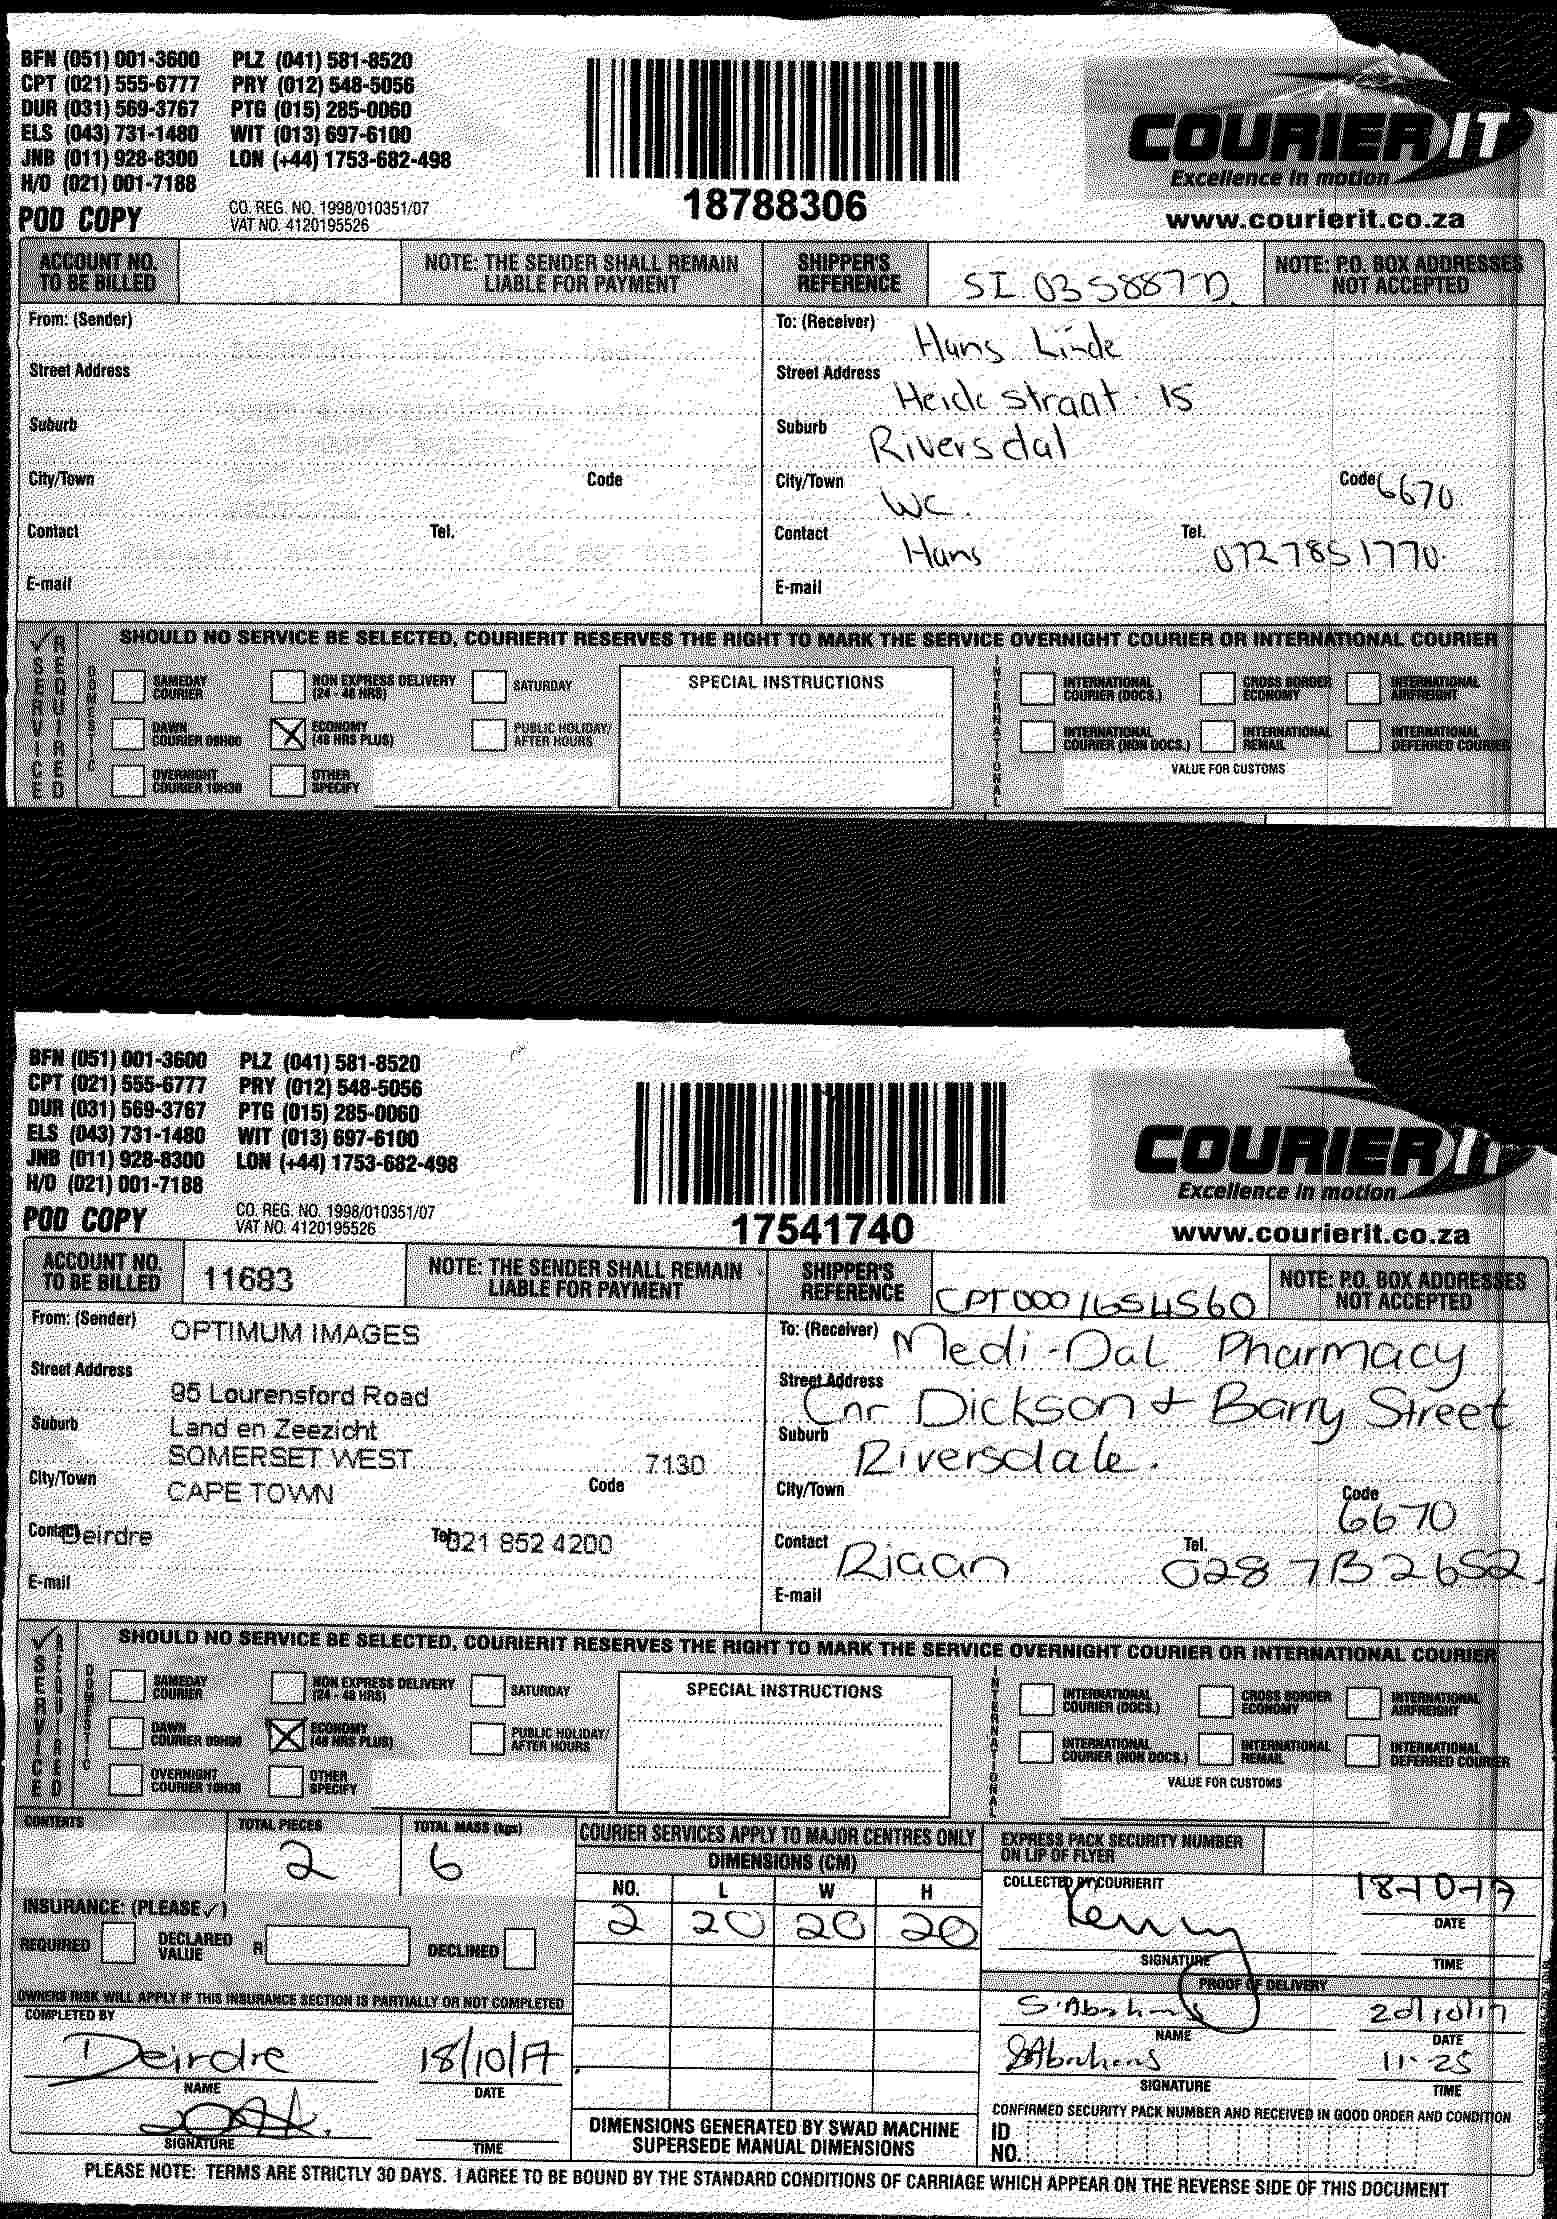 BFN (051) 001-3600 PLZ (041) 581-8520
CPT (021) 555-6777 PRY (012) 548-5056
DUR (031) 569-3767 PTG (015) 285-0060
ELS (043) 731-1480 WIT (013) 697-6100
JNB (011) 928-8300 LON (+44) 1753-682-498
H/O (021) 001-7188
POD COPY
CO. REG. NO. 1998/010351/07
VAT NO. 4120195526
18788306
COURIER IT
Excellence in motion
www.courierit.co.za
ACCOUNT NO. TO BE BILLED
NOTE: THE SENDER SHALL REMAIN LIABLE FOR PAYMENT
SHIPPER'S REFERENCE
SI 035887D
NOTE: P.O. BOX ADDRESSES NOT ACCEPTED
From: (Sender)
Street Address
Suburb
City/Town Code
Contact Tel.
E-mail
To: (Receiver) Hans Linde
Street Address Heide straat 15
Suburb Riversdal
City/Town WC. Code 6670
Contact Hans Tel. 0727851770
E-mail
SERVICE REQUIRED
SHOULD NO SERVICE BE SELECTED, COURIERIT RESERVES THE RIGHT TO MARK THE SERVICE OVERNIGHT COURIER OR INTERNATIONAL COURIER
DOMESTIC
SAMEDAY COURIER
NON EXPRESS DELIVERY (24 - 48 HRS)
SATURDAY
DAWN COURIER 09H00
ECONOMY (48 HRS PLUS)
PUBLIC HOLIDAY/ AFTER HOURS
OVERNIGHT COURIER 10H30
OTHER SPECIFY
SPECIAL INSTRUCTIONS
INTERNATIONAL
INTERNATIONAL COURIER (DOCS.)
CROSS BORDER ECONOMY
INTERNATIONAL AIRFREIGHT
INTERNATIONAL COURIER (NON DOCS.)
INTERNATIONAL REMAIL
INTERNATIONAL DEFERRED COURIER
VALUE FOR CUSTOMS
BFN (051) 001-3600 PLZ (041) 581-8520
CPT (021) 555-6777 PRY (012) 548-5056
DUR (031) 569-3767 PTG (015) 285-0060
ELS (043) 731-1480 WIT (013) 697-6100
JNB (011) 928-8300 LON (+44) 1753-682-498
H/O (021) 001-7188
POD COPY
CO. REG. NO. 1998/010351/07
VAT NO. 4120195526
17541740
COURIER IT
Excellence in motion
www.courierit.co.za
ACCOUNT NO. TO BE BILLED
11683
NOTE: THE SENDER SHALL REMAIN LIABLE FOR PAYMENT
SHIPPER'S REFERENCE
CPT0001654560
NOTE: P.O. BOX ADDRESSES NOT ACCEPTED
From: (Sender) OPTIMUM IMAGES
Street Address 95 Lourensford Road
Suburb Land en Zeezicht
SOMERSET WEST 7130
City/Town CAPE TOWN Code
Contact Deirdre Tel. 021 852 4200
E-mail
To: (Receiver) Medi-Dal Pharmacy
Street Address Cnr Dickson + Barry Street
Suburb Riversdale.
City/Town Code 6670
Contact Riaan Tel. 028 713 2652
E-mail
SERVICE REQUIRED
SHOULD NO SERVICE BE SELECTED, COURIERIT RESERVES THE RIGHT TO MARK THE SERVICE OVERNIGHT COURIER OR INTERNATIONAL COURIER
DOMESTIC
SAMEDAY COURIER
NON EXPRESS DELIVERY (24 - 48 HRS)
SATURDAY
DAWN COURIER 09H00
ECONOMY (48 HRS PLUS)
PUBLIC HOLIDAY/ AFTER HOURS
OVERNIGHT COURIER 10H30
OTHER SPECIFY
SPECIAL INSTRUCTIONS
INTERNATIONAL
INTERNATIONAL COURIER (DOCS.)
CROSS BORDER ECONOMY
INTERNATIONAL AIRFREIGHT
INTERNATIONAL COURIER (NON DOCS.)
INTERNATIONAL REMAIL
INTERNATIONAL DEFERRED COURIER
VALUE FOR CUSTOMS
CONTENTS
TOTAL PIECES 2
TOTAL MASS (kgs) 6
INSURANCE: (PLEASE ✓)
REQUIRED DECLARED VALUE R DECLINED
OWNERS RISK WILL APPLY IF THIS INSURANCE SECTION IS PARTIALLY OR NOT COMPLETED
COMPLETED BY
Deirdre 18/10/17
NAME DATE
SIGNATURE TIME
COURIER SERVICES APPLY TO MAJOR CENTRES ONLY
DIMENSIONS (CM)
NO. L W H
2 20 20 20
DIMENSIONS GENERATED BY SWAD MACHINE SUPERSEDE MANUAL DIMENSIONS
EXPRESS PACK SECURITY NUMBER ON LIP OF FLYER
COLLECTED BY COURIERIT
18-10-17
DATE
SIGNATURE TIME
PROOF OF DELIVERY
S. Abrahams 20/10/17
NAME DATE
SAbrahams 11-25
SIGNATURE TIME
CONFIRMED SECURITY PACK NUMBER AND RECEIVED IN GOOD ORDER AND CONDITION
ID NO.
PLEASE NOTE: TERMS ARE STRICTLY 30 DAYS. I AGREE TO BE BOUND BY THE STANDARD CONDITIONS OF CARRIAGE WHICH APPEAR ON THE REVERSE SIDE OF THIS DOCUMENT